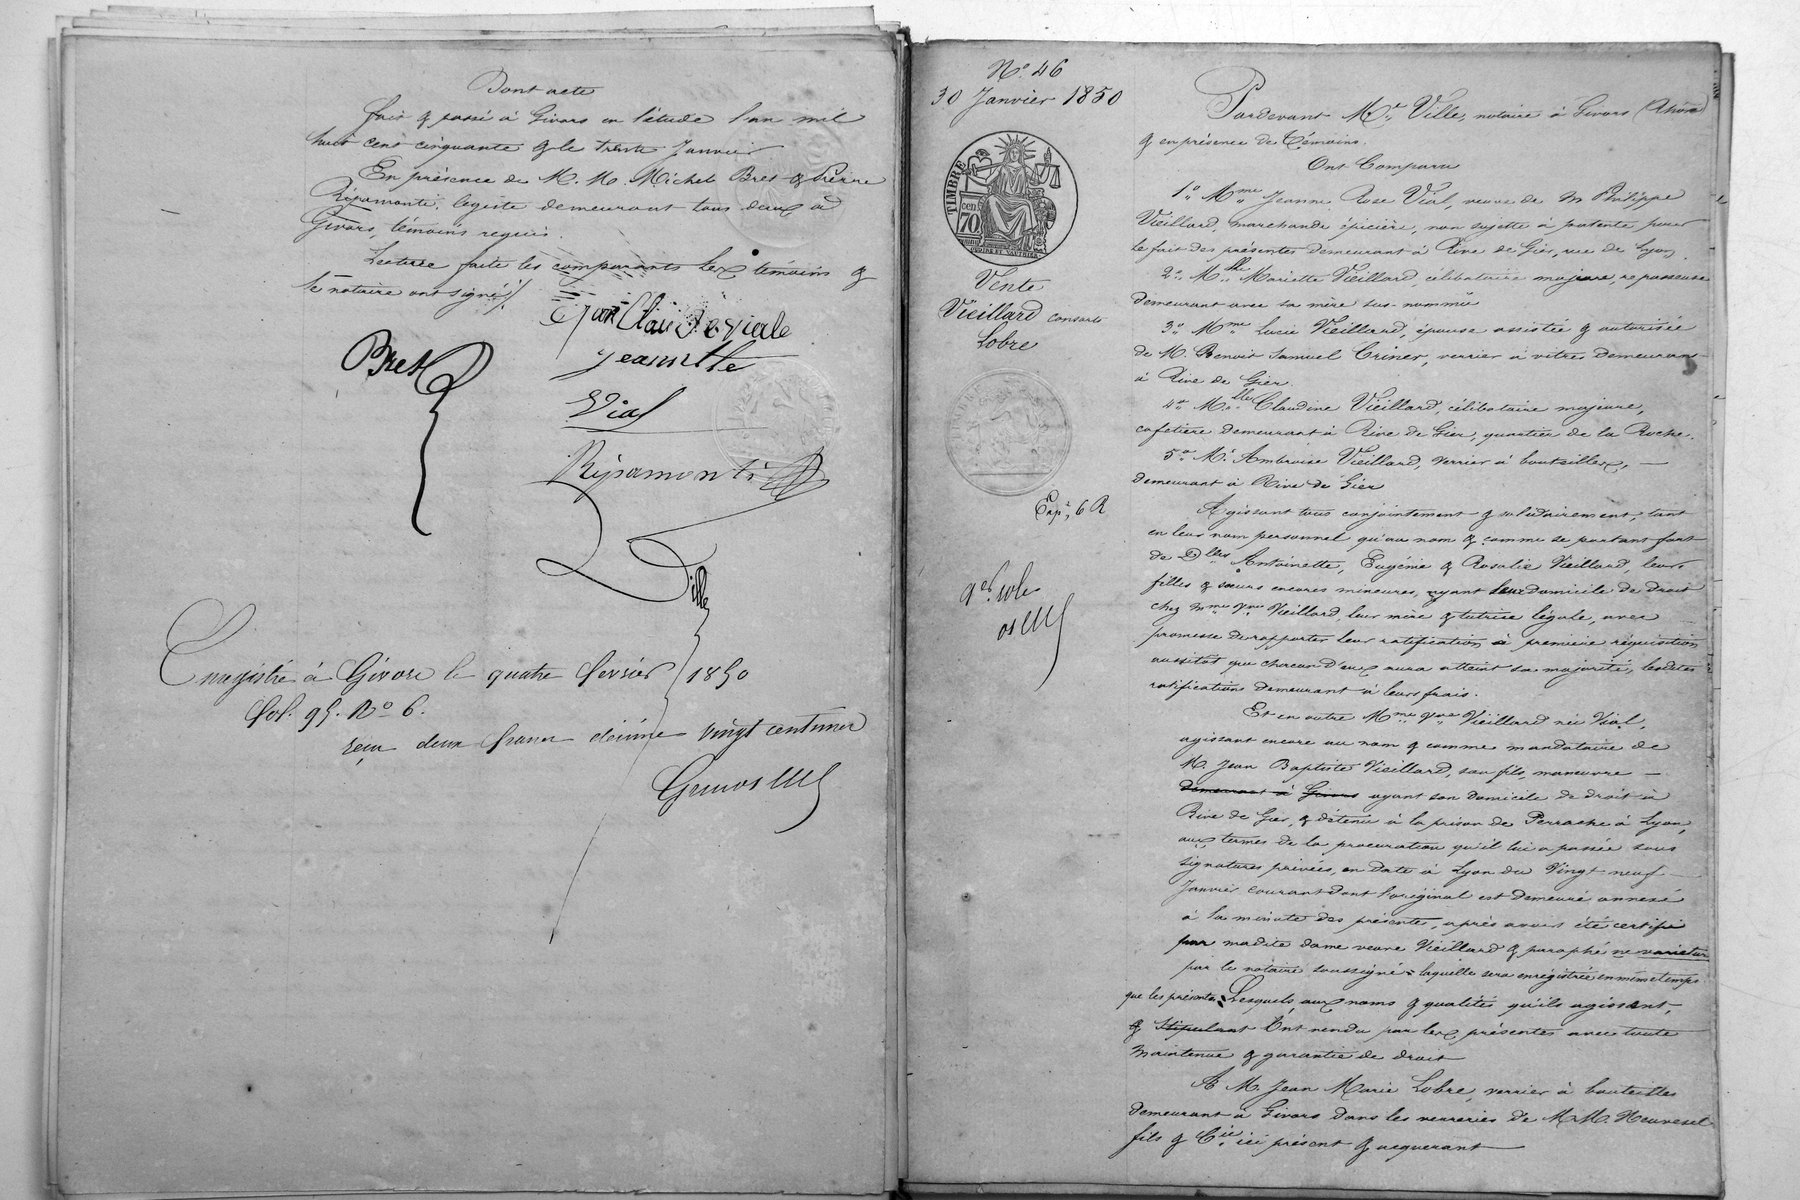 Dont acte
fait & passé à Givors en l'étude l'an mil
huit cent cinquante & le trente Janvier
En présence de M. M. Michel Bret & Pierre
Répamonti, legiste demeurant tous deux à
Givors, témoins requis.
Lecture faite les comparants les témoins &
le notaire ont signé /.
Jean Claude viale
Bret
jeannette
Vial
Répamonti
Ville
Enregistré à Givors le quatre février 1850
fol. 95. No 6.
reçu deux francs décime vingt centimes
No. 46
30 Janvier 1850
TIMBRE
70 cen
Vente
Vieillard consorts
Lobre
Exp. 6 R
Pardevant Me. Ville, notaire à Givors (Rhône)
& en présence de Témoins.
Ont Comparu
1o. Mme Jeanne Rose Vial, veuve de M Philippe
Vieillard, marchande épicière, non sujette à patente pour
le fait des présentes demeurant à Rive de Gier, rue de Lyon.
2o. Mlle Mariette Vieillard, célibataire majeure, repasseuse
demeurant avec sa mère sus-nommée
3o. Mme Lucie Vieillard, épouse assistée & autorisée
de M. Benoit Samuel Criner, verrier à vitres demeurant
à Rive de Gier.
4o. Mlle Claudine Vieillard, célibataire majeure,
cafetière demeurant à Rive de Gier, quartier de la Roche.
5o. Mr. Ambroise Vieillard, verrier à bouteilles, —
demeurant à Rive de Gier
Agissant tous conjointement & solidairement, tant
en leur nom personnel qu'au nom & comme se portant fort
de Dlles Antoinette, Eugénie & Rosalie Vieillard, leurs
filles & sœurs encores mineures, ayant leur domicile de droit
chez Mme Vve Vieillard, leur mère & tutrice légale, avec
promesse de rapporter leur ratification à première réquisition
aussitôt que chacun d'eux aura atteint sa majorité, lesdites
ratifications demeurant à leurs frais.
Et en outre Mme Vve Vieillard née Vial,
agissant encore au nom & comme mandataire de
M. Jean Baptiste Vieillard, son fils, manœuvre —
demeurant à Givors ayant son domicile de droit à
Rive de Gier, & détenu à la prison de Perrache à Lyon,
aux termes de la procuration qu'il lui a passée sous
signatures privées, en date à Lyon du Vingt neuf —
Janvier courant dont l'original est demeuré annexé
à la minute des présentes, après avoir été certifié
par madite dame veuve Vieillard & paraphé ne varietur
par le notaire soussigné laquelle sera enregistrée en même temps
que les présentes. Lesquels, aux noms & qualités qu'ils agissent,
& stipulant Ont vendu par les présentes avec toute
maintenue & garantie de droit
A M. Jean Marie Lobre, verrier à bouteilles
demeurant à Givors dans les verreries de M.M. Neuvesel
fils & Cie ici présent & acquerant